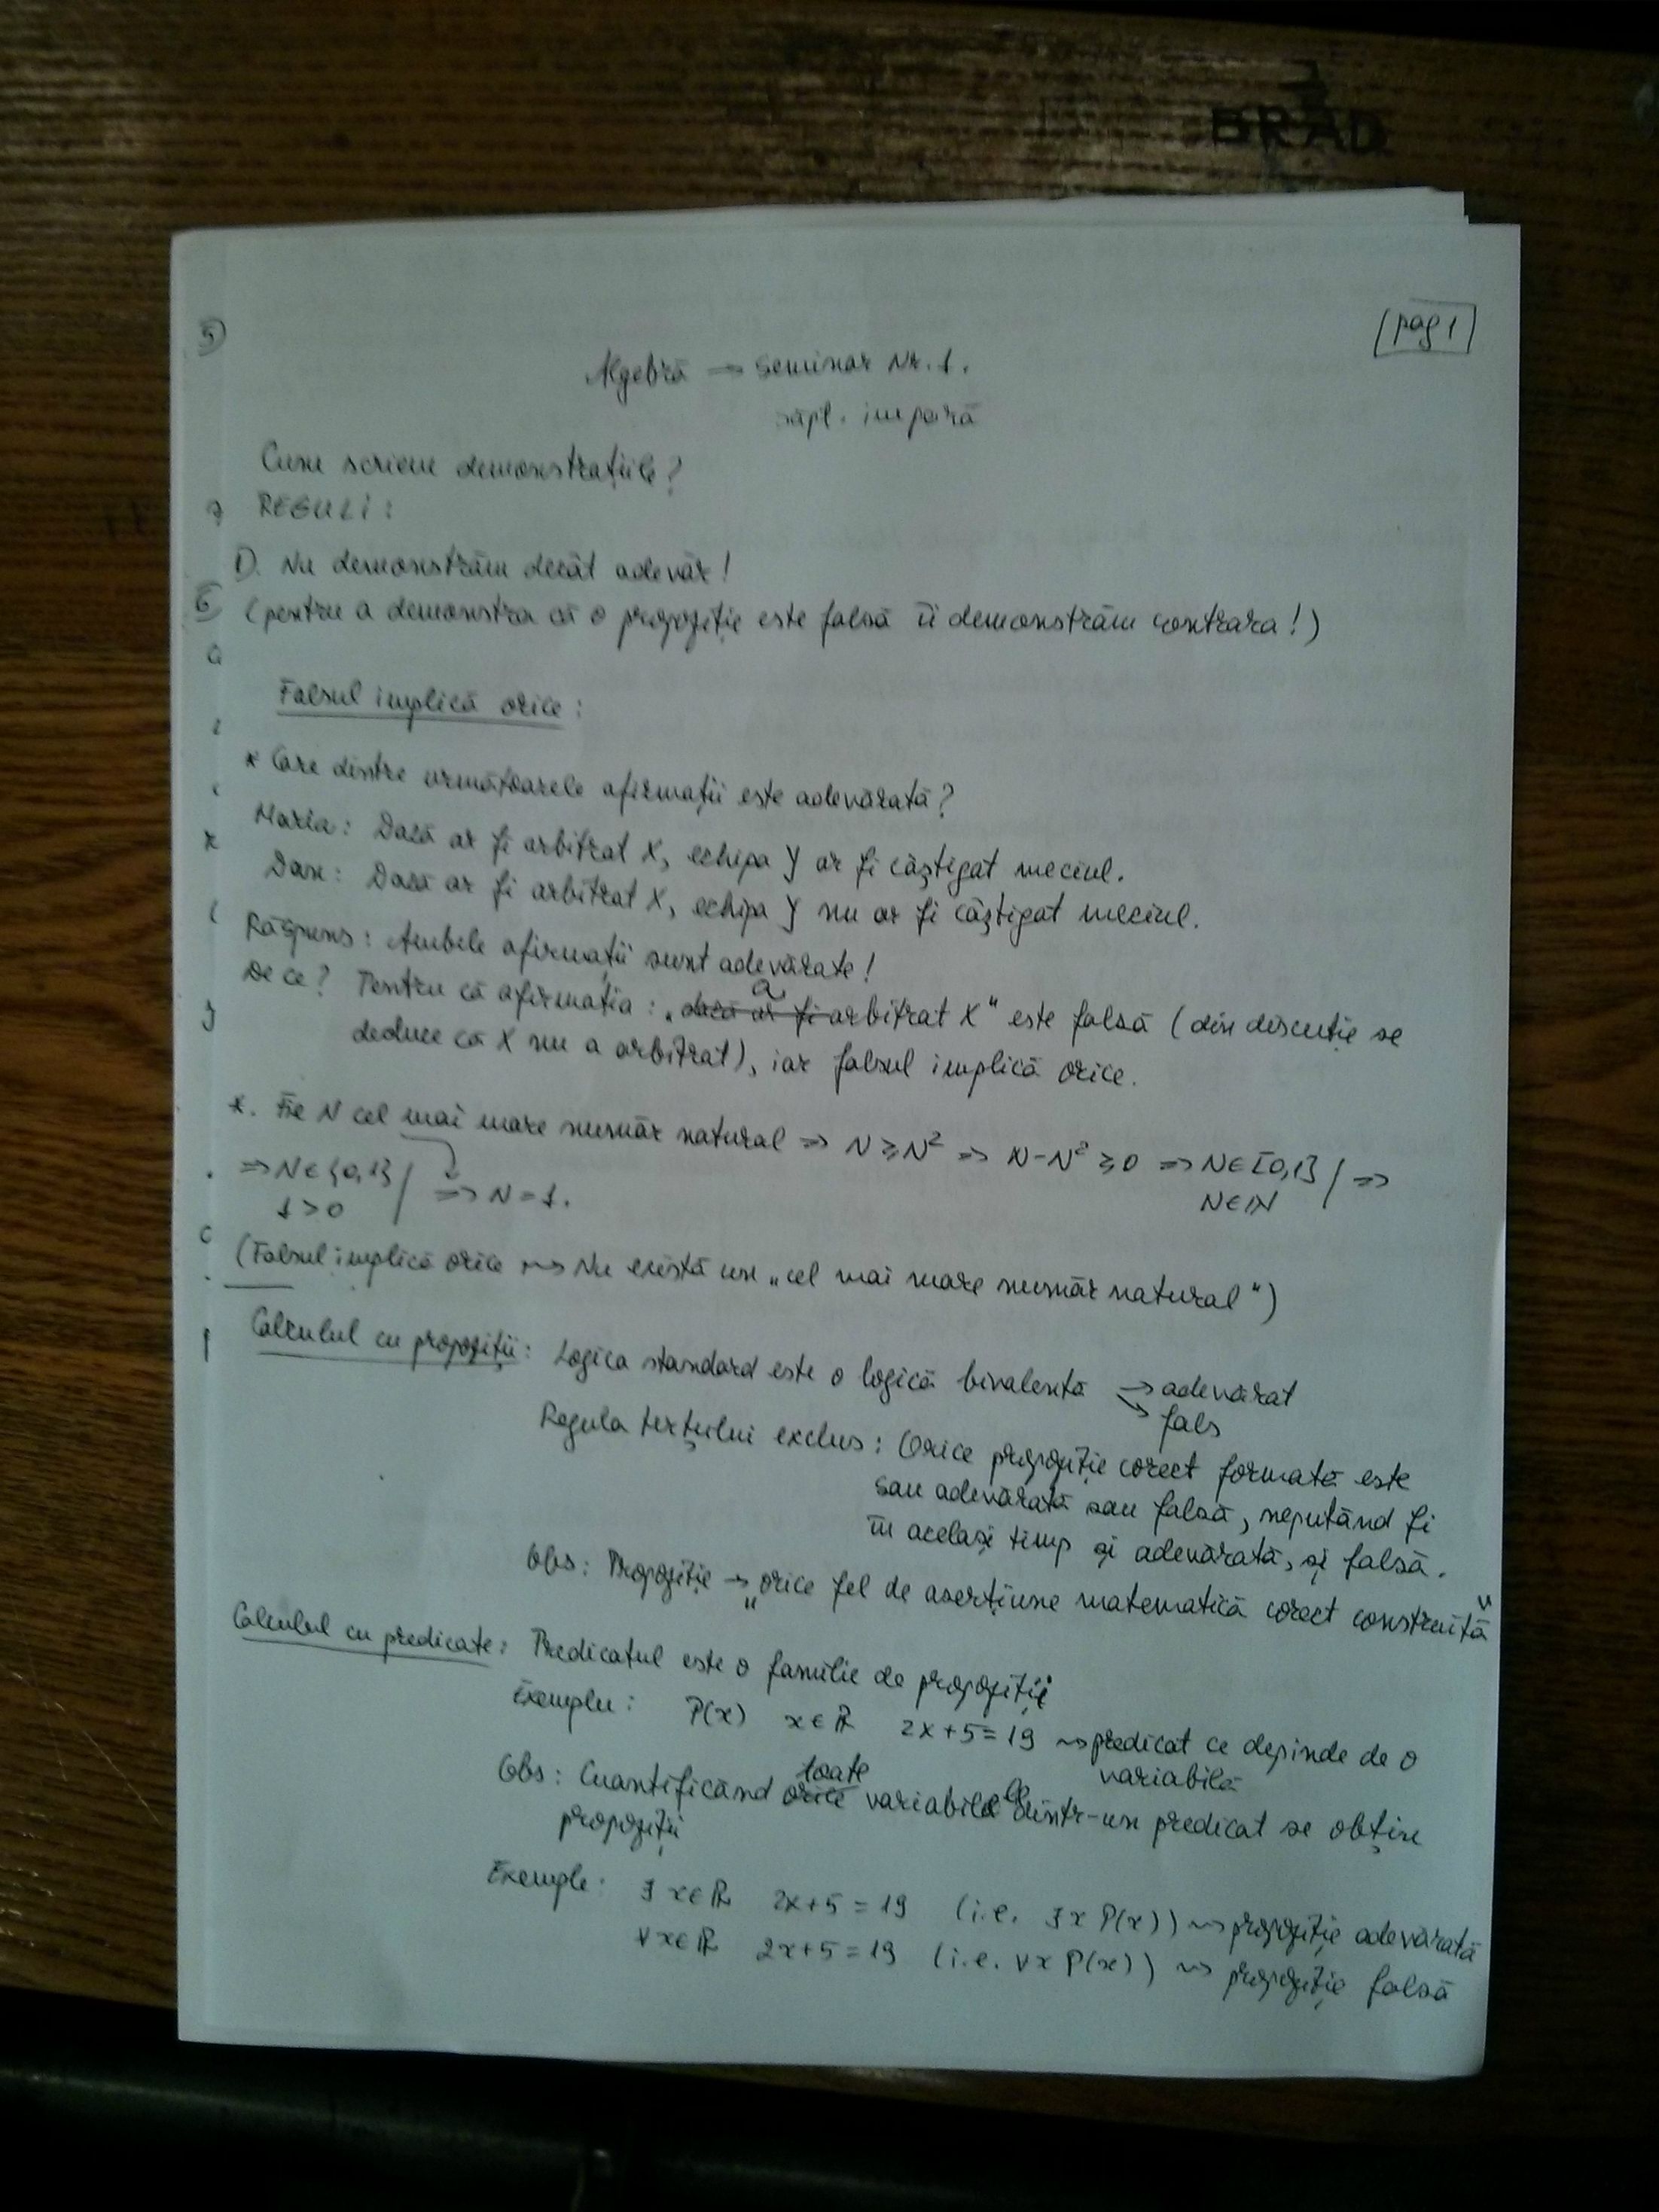 BRAD
pag 1
Algebră → Seminar Nr. 1.
săpt. impară
Cum scriem demonstrațiile?
REGULI:
1). Nu demonstrăm decât adevăr!
(pentru a demonstra că o propoziție este falsă îi demonstrăm contrara!)
Falsul implică orice:
* Care dintre următoarele afirmații este adevărată?
Maria: Dacă ar fi arbitrat X, echipa Y ar fi câștigat meciul.
Dan: Dacă ar fi arbitrat X, echipa Y nu ar fi câștigat meciul.
Răspuns: Ambele afirmații sunt adevărate!
De ce? Pentru că afirmația: „dacă ar fi a arbitrat X" este falsă (din discuție se
deduce că X nu a arbitrat), iar falsul implică orice.
*. Fie N cel mai mare număr natural => N ≥ N² => N-N² ≥ 0 => N∈[0,1] / =>
N∈ℕ
=> N∈{0,1} / => N = 1.
1 > 0
(Falsul implică orice ⇝ Nu există un „cel mai mare număr natural")
Calculul cu propoziții: Logica standard este o logică bivalentă → adevărat
↘ fals
Regula terțului exclus: Orice propoziție corect formată este
sau adevărată sau falsă, neputând fi
în același timp și adevărată, și falsă.
Obs: Propoziție → „orice fel de aserțiune matematică corect construită"
Calculul cu predicate: Predicatul este o familie de propoziții
Exemplu: P(x) x∈ℝ 2x+5=19 ⇝ predicat ce depinde de o
variabilă
Obs: Cuantificând orice toate variabilele dintr-un predicat se obțin
propoziții
Exemple: ∃ x∈ℝ 2x+5=19 (i.e. ∃x P(x)) ⇝ propoziție adevărată
∀x∈ℝ 2x+5=19 (i.e. ∀x P(x)) ⇝ propoziție falsă